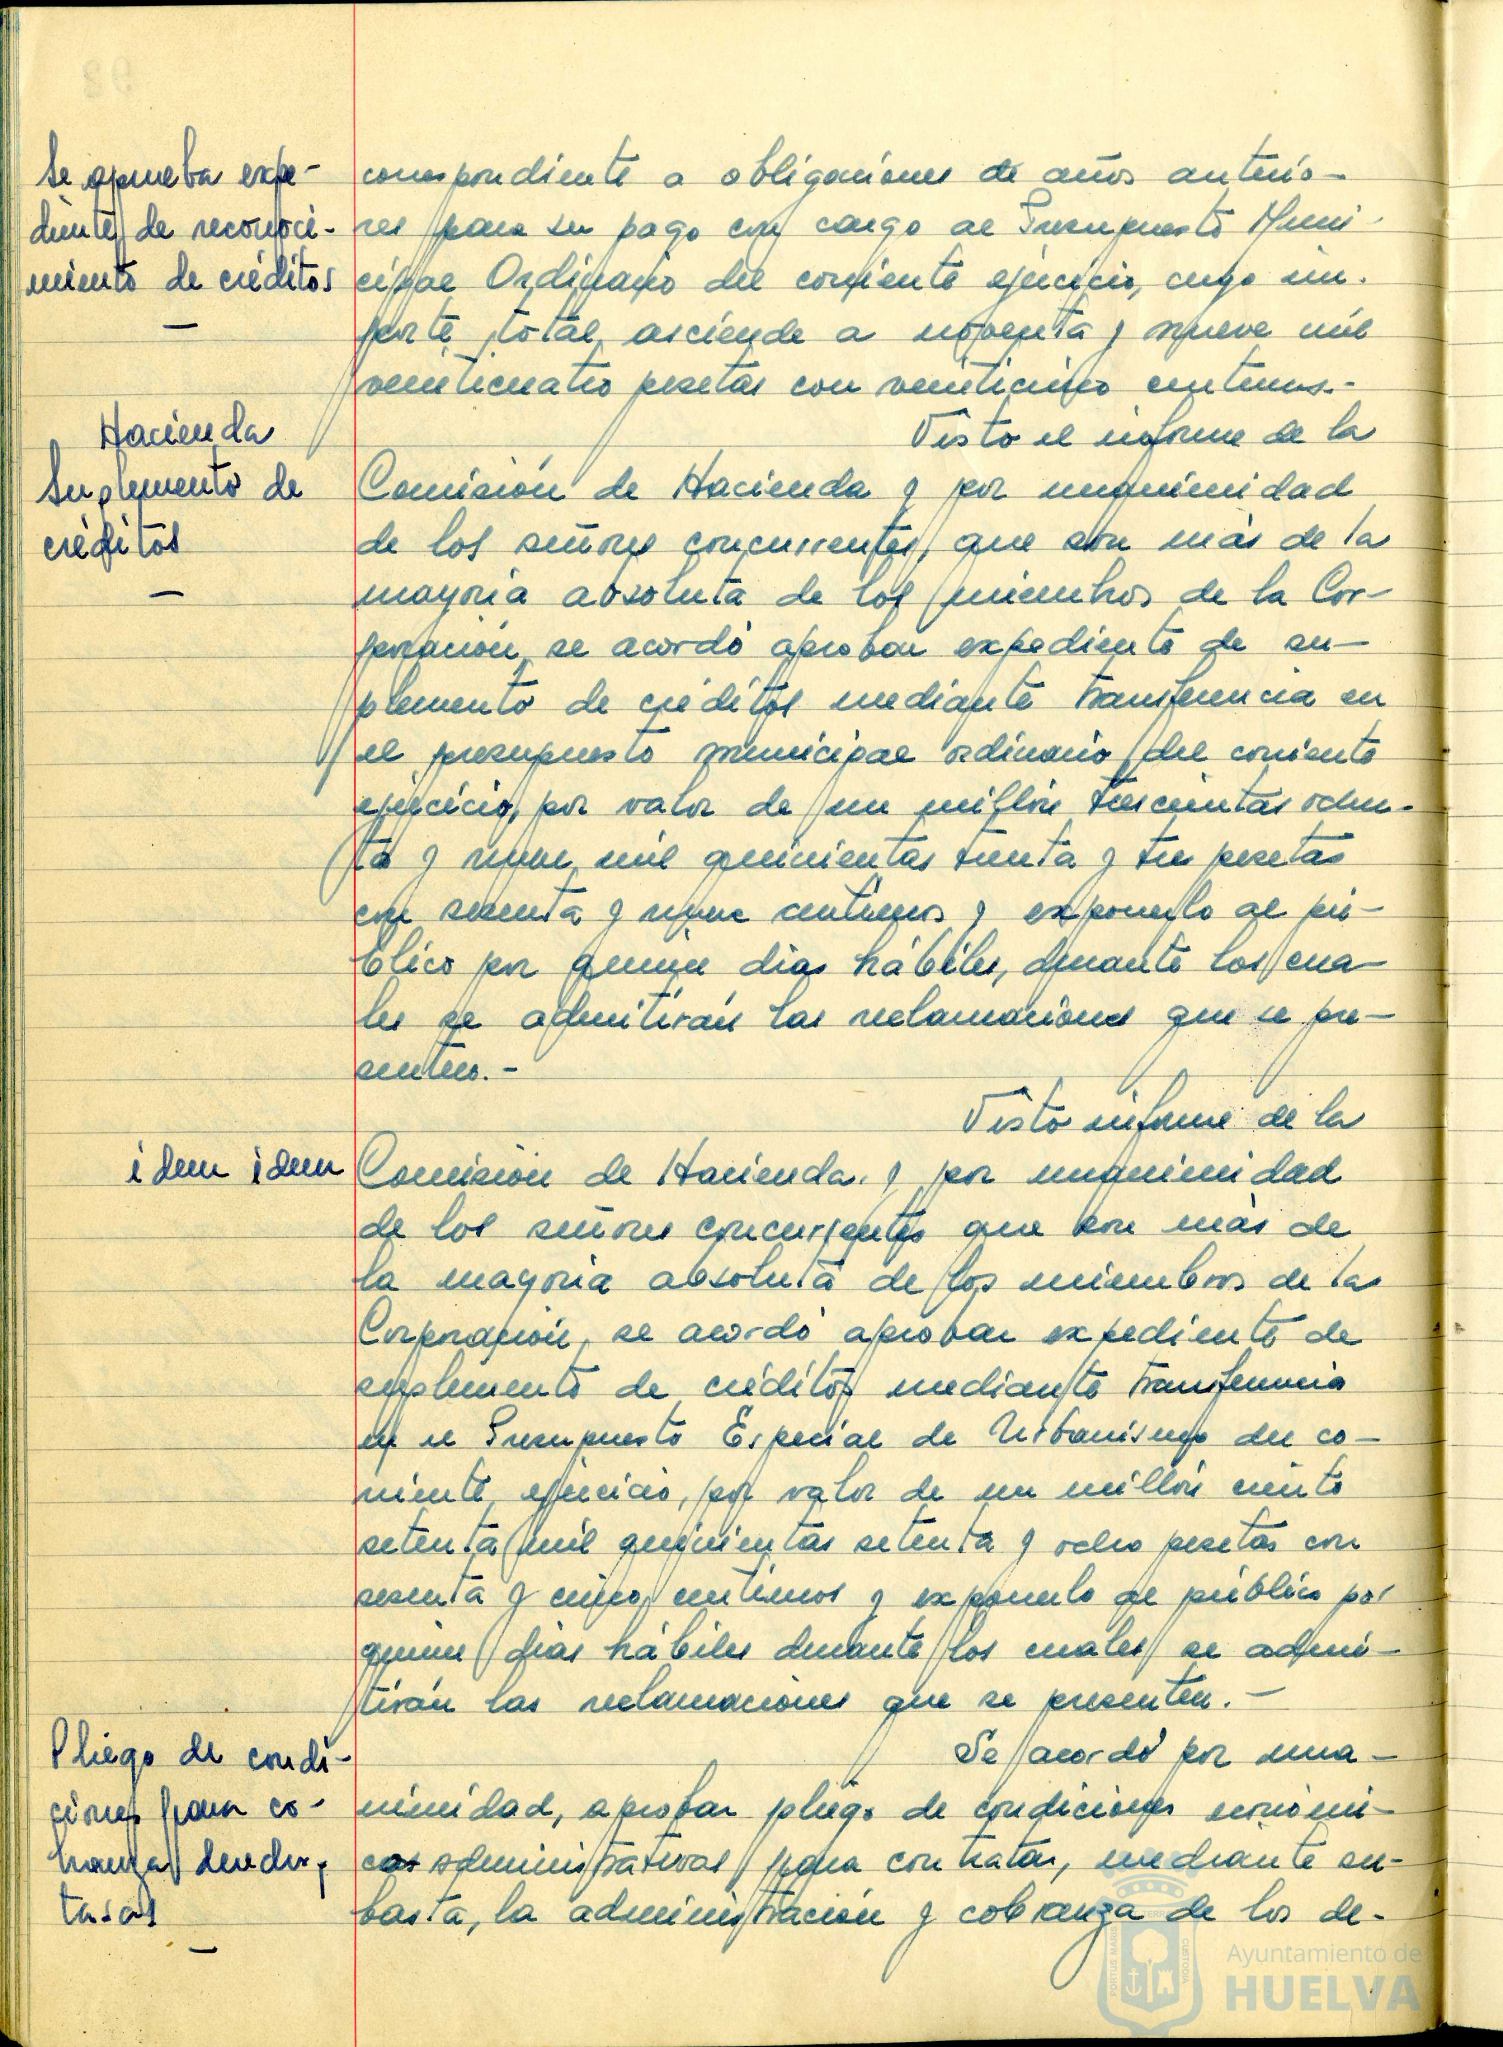 Se aprueba expe-
diente de reconoci-
miento de créditos
correspondiente a obligaciones de años anterio-
res para su pago con cargo al Presupuesto Muni-
cipal Ordinario del corriente ejercicio, cuyo im-
porte total asciende a noventa y nueve mil
veinticuatro pesetas con veinticinco centimos.-
Hacienda
Suplemento de
créditos
Visto el informe de la
Comisión de Hacienda y por unanimidad
de los señores concurrentes, que son más de la
mayoria absoluta de los miembros de la Cor-
poración, se acordó aprobar expediente de su-
plemento de créditos mediante transferencia en
el presupuesto municipal ordinario del corriente
ejercicio, por valor de un millón trescientas ochen-
ta y nueve mil quinientas treinta y tres pesetas
con sesenta y nueve centimos y exponerlo al pú-
blico por quince dias hábiles, durante los cua-
les se admitirán las reclamaciones que se pre-
senten.-
idem idem
Visto informe de la
Comisión de Hacienda, y por unanimidad
de los señores concurrentes que son más de
la mayoria absoluta de los miembros de la
Corporación, se acordó aprobar expediente de
suplemento de créditos mediante transferencia
en el Presupuesto Especial de Urbanismo del co-
rriente ejercicio, por valor de un millón ciento
setenta mil quinientas setenta y ocho pesetas con
sesenta y cinco centimos y exponerlo al público por
quince dias hábiles durante los cuales se admi-
tirán las reclamaciones que se presenten.-
Pliego de condi-
ciones para co-
branza derechos,
tasas
Se acordó por una-
nimidad, aprobar pliego de condiciones económi-
cas administrativas para contratar, mediante su-
basta, la administración y cobranza de los de-
Ayuntamiento de
HUELVA